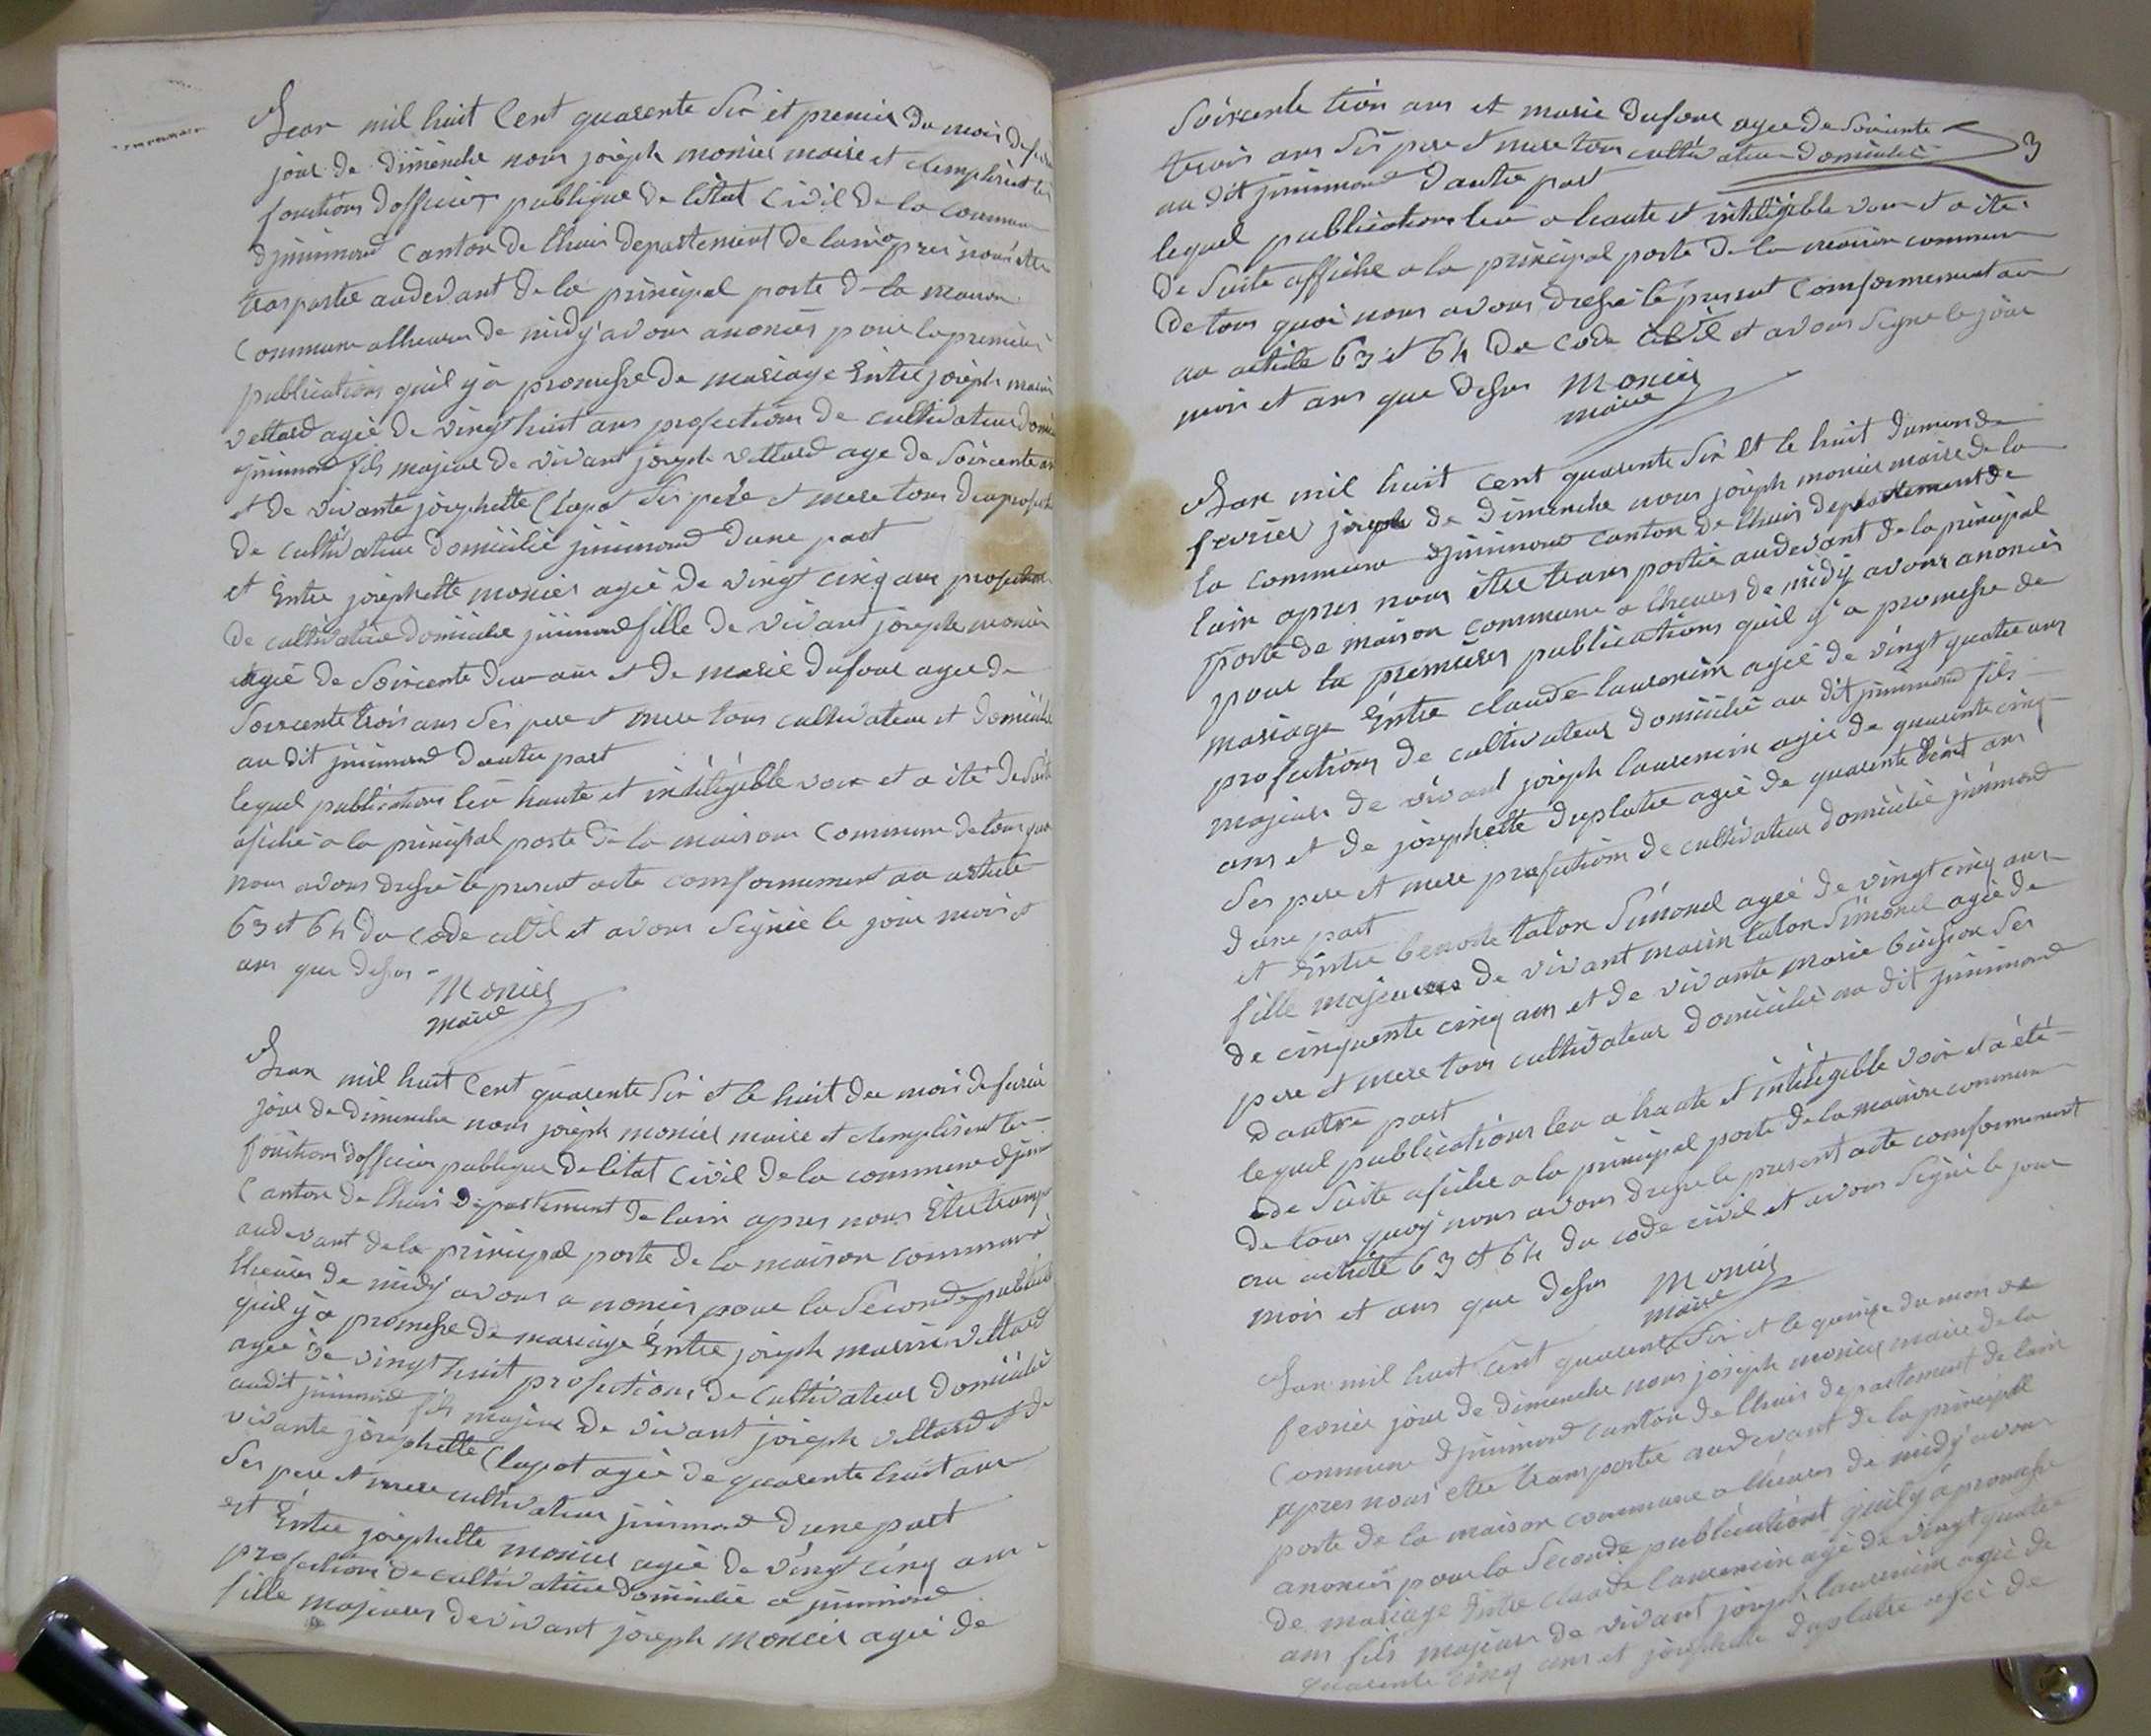 Lan mil huit Cent quarente Six et premier du mois de
jour de dimenche nous joseph monier maire et Remplisent les
fonctions dofficier publique de létat Civil de la commune
djnimond Canton de lhuis departement de lain apres nous etre
trasportee audevant de la principal porte de la maison
Commune a lheures de midy avons anoncés pour la premieres
publications quil y a promesse de mariage Entre joseph marin
vettard agée de vingt huit ans profections de cultivateur
jnimond fils majeur de vivant joseph vettard age de Soixcente
et de vivante josephette Clapot Ses pere et mere tous deux
de cultivateur domicilié jnimond dune part
et Entre josephette monier agée de vingt cinq ans profections
de cultivatrice domicilie jnimond fille de vivant joseph monier
agée de Soixcente deux ans et de marie dufour agee de
Soixcente trois ans Ses pere et mere tous cultivateur et domicilie
au dit jnimond dautre part
lequel publications leu haute et inteligible voix et a ité de Suite
afiché a la principal porte de la maison Commune de tous quoi
nous avons dressé le present acte comformement au article
63 et 64 du code civil et avons Signée le jour mois et
ans que dessus
Monier
maire
Lan mil huit Cent quarente Six et le huit du mois de fevrier
jour de dimenche nous joseph monier maire et Remplisent les
fonctions dofficier publique de létat Civil de la commune
Canton de lhuis departement de lain apres nous Etre
audevant de la principal porte de la maison commune
lheures de midy avons anonces pour la Seconde
quil y a promesse de mariage Entre joseph marin vettard
agée de vingt huit profections de Cultivateur domicilié
audit jnimond fils majeur de vivant joseph vettard et de
vivante josephette Clapot agée de quarente huit ans
Ses pere et mere cultivateur jnimond dune part
et Entre josephette monier agée de vingt cinq ans
profections de cultivatrice domicilié a jnimond
fille majeures de vivant joseph monier agée de
Soixcente ans et marie dufour agee de Soixcente
3
trois ans Ses pere et mere tous cultivateur domicilié
au dit jnimond dautre part
lequel publications leu a haute et inteligible voix et a ité
de Suite affiche a la principal porte de la maison commune
de tous quoi nous avons dressé le present Comformement au
au article 63 et 64 du code civil et avons Signe le jour
mois et ans que dessus Monier
maire
Lan mil huit cent quarente Six et le huit du mois de
fevrier de dimenche nous joseph monier maire de la
la commune djnimond canton de lhuis departement de
lain apres nous etre trans portée audevant de la principal
porte de maison commune a lheures de midy avons anonces
pour la premieres publications quil y a promesse de
mariage Entre claude laurencin agée de vingt quatre ans
profections de cultivateur domicilié au dit jnimond fils
majeur de vivant joseph laurencin agée de quarente cinq
ans et de josephette duplatre agée de quarente ans
Ses pere et mere profections de cultivateur domicilié jnimond
dune part
et Entre benoite talon Simonel agée de vingt cinq ans
fille majeures de vivant marin talon Simonel agée de
de cinquente cinq ans et de vivante marie buisson Ses
pere et mere tous cultivateur domicilié au dit jnimond
dautre part
lequel publications leu a haute et inteligible voix et a été
de Suite afiche a la principal porte de la maison commune
de tous quoy nous avons dresse le present acte comformement
au article 63 et 64 du code civil et avons Signé le jour
mois et ans que dessus Monier
maire
Lan mil huit Cent quarente Six et le quinze du mois de
fevrier jour de dimenche nous joseph monier maire de la
Commune djnimond canton de lhuis departement de lain
apres nous etre transportée audevant de la principal
porte de la maison commune a lheures de midy avons
anonces pour la Seconde publications quil y a promesse
de mariage Entre claude laurencin age de vingt quatre
ans fils majeur de vivant joseph laurencin agée de
quarente cinq ans et josephette duplatre agée de